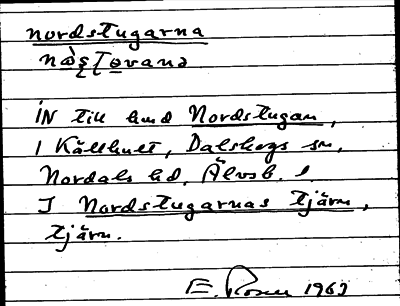 nordstugarna
IN till hmd Nordstugan,
i Källhult, Dalskogs sn,
Nordals hd, Älvsb. l.
I Nordstugarnas tjärn,
tjärn.
E. Rosén